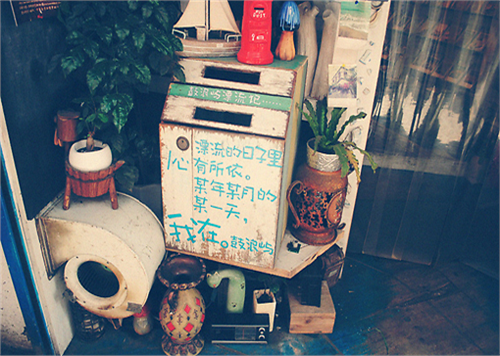 POST
鼓浪屿漂流记......
漂流的日子里
心有所依。
某年某月的
某一天，
我在。鼓浪屿
CE